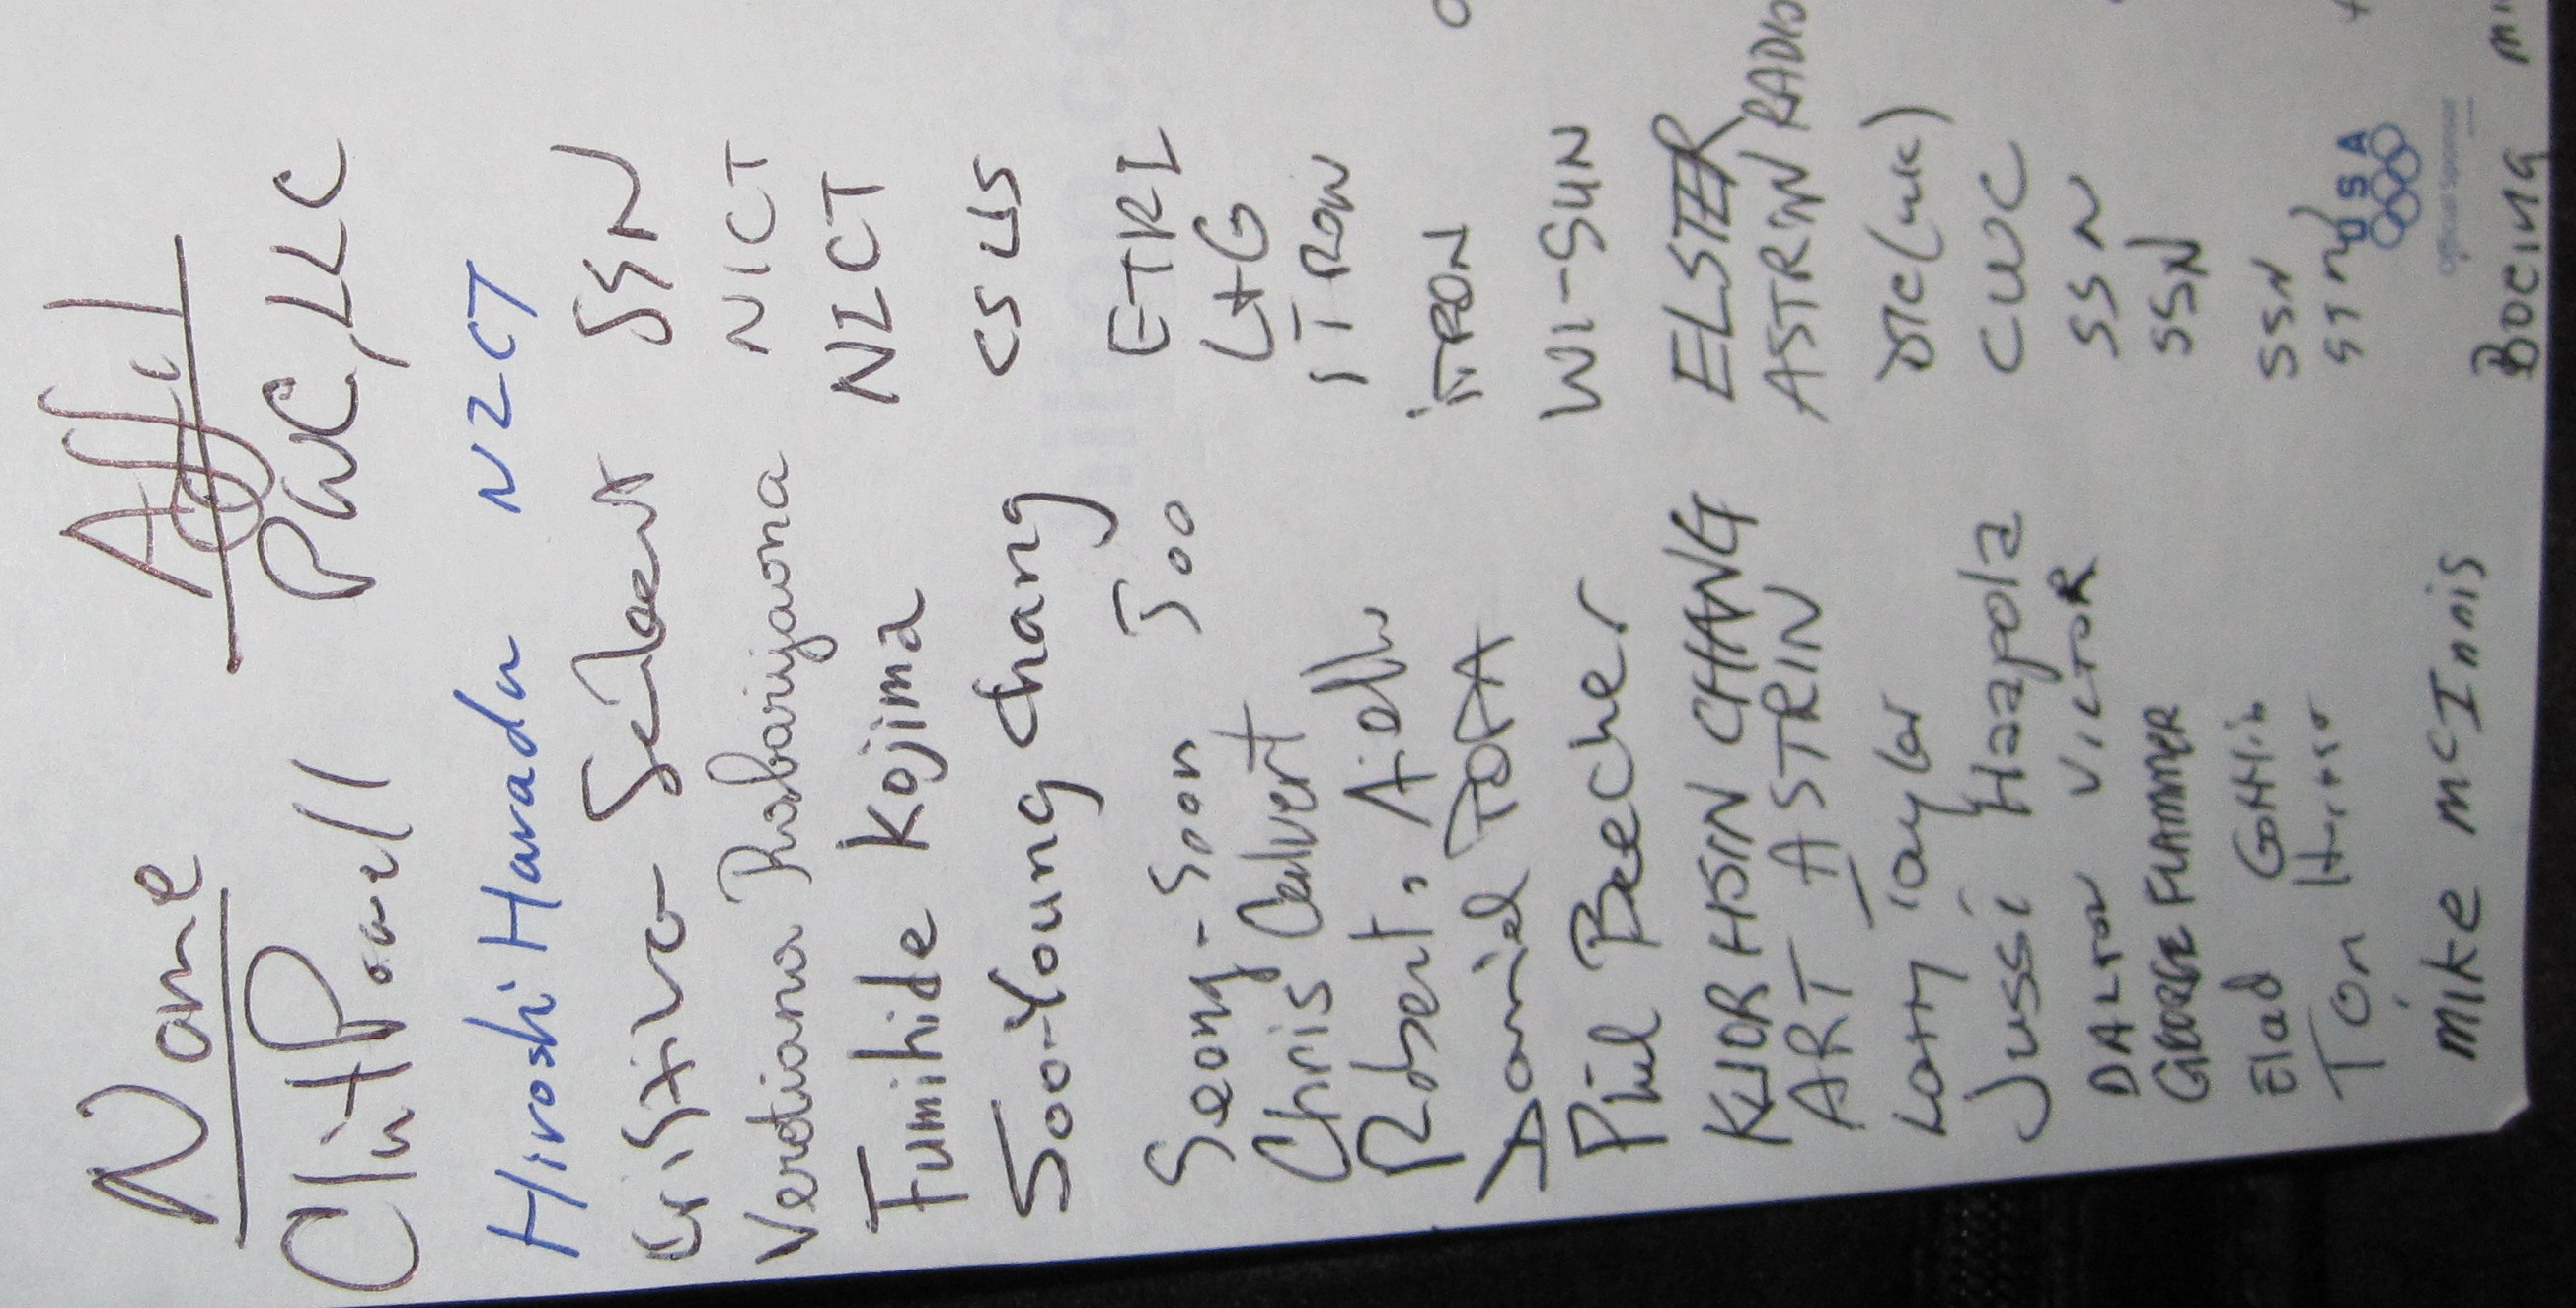 Name Affil
Clint Powell PWC, LLC
Hiroshi Harada NICT
Cristina Seibert SSN
Verotiana Rabarijaona NICT
Fumihide Kojima NICT
Soo-Young Chang CSUS
Seong-Soon Joo ETRI
Chris Calvert L+G
Robert Aiello ITRON
Daniel POPA iTRON
Phil Beecher WI-SUN
KUOR HSIN CHANG ELSTER
ART ASTRIN ASTRIN RADIO
Larry Taylor DTC (UK)
Jussi Haapola CWC
DALTON VICTOR SSN
GEORGE FLAMMER SSN
Elad Gottlib SSN
USA
Official Sponsor
mike mcInnis Boeing